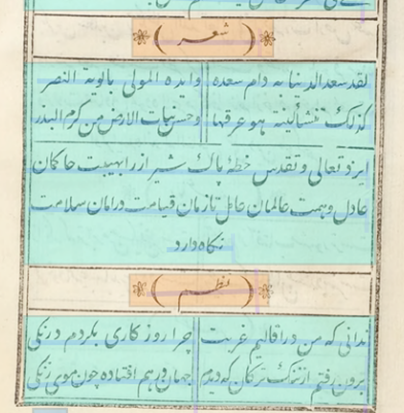 (شعر)
لقد سعد الدنیا به دام سعده وایده المولی بالویة النصر
کذلک تنشا لینة هو عرقها وحسن نبات الارض من کرم البذر
ایزد تعالی و تقدس خطه پاک شیراز را بهیبت حاکمان
عادل و همت عالمان عامل تا زمان قیامت در امان سلامت
نگاه دارد
(نظم)
ندانی که من در اقالیم غربت چرا روزگاری بکردم درنگی
برون رفتم از ننگ ترکان که دیدم جهان در هم افتاده چون موی زنگی